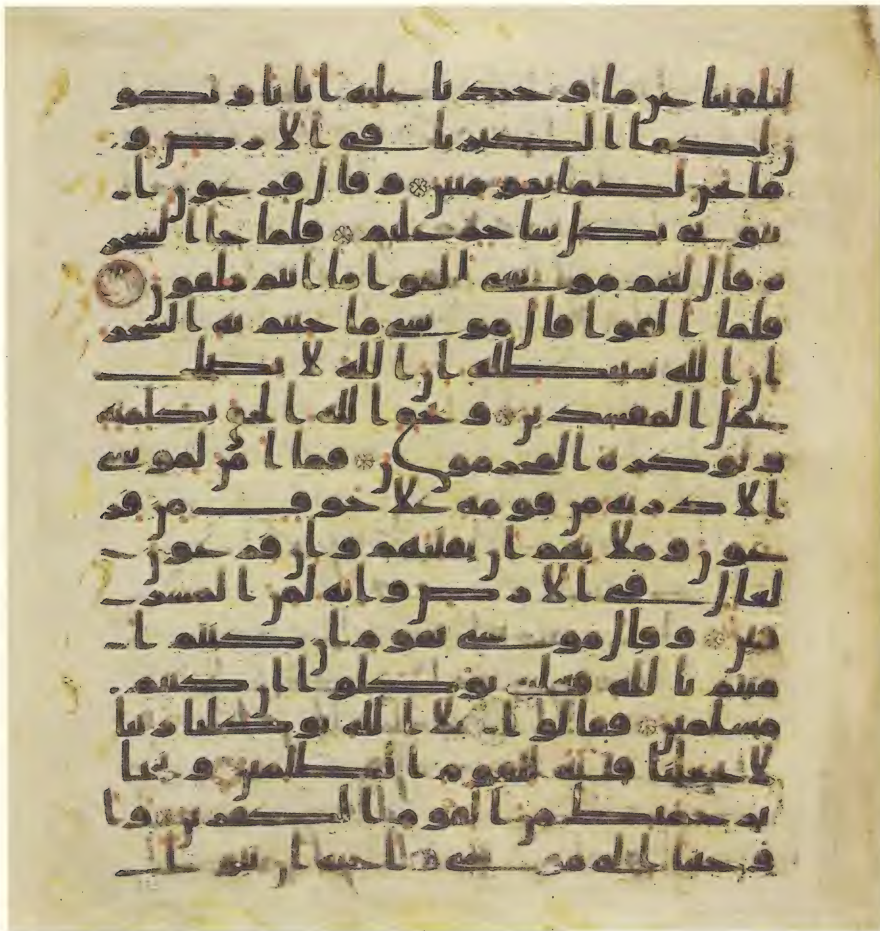 لتلفتنا عن ما وجدنا عليه ابانا وتكو
ن لكما الكبريا في الارض و
ما نحن لكما بمومنين وقال فرعون ا
يتوني بكل ساحر عليم فلما جا السحر
ة قال لهم موسى القوا ما انتم ملقون
فلما القوا قال موسى ما جئتم به السحر
ان الله سيبطله ان الله لا يصلح
عمل المفسدين ويحق الله الحق بكلمته
ولو كره المجرمون فما امن لموسى
الا ذرية من قومه علا خوف من فر
عون وملايهم ان يفتنهم وان فرعون
لعال في الارض وانه لمن المسر
فين وقال موسى يقوم ان كنتم ا
منتم بالله فعليه توكلوا ان كنتم
مسلمين فقالوا علا الله توكلنا ربنا
لا تجعلنا فتنة للقوم الظلمين ونجنا
برحمتك من القوم الكفرين وا
وحينا الى موسى واخيه ان تبوا